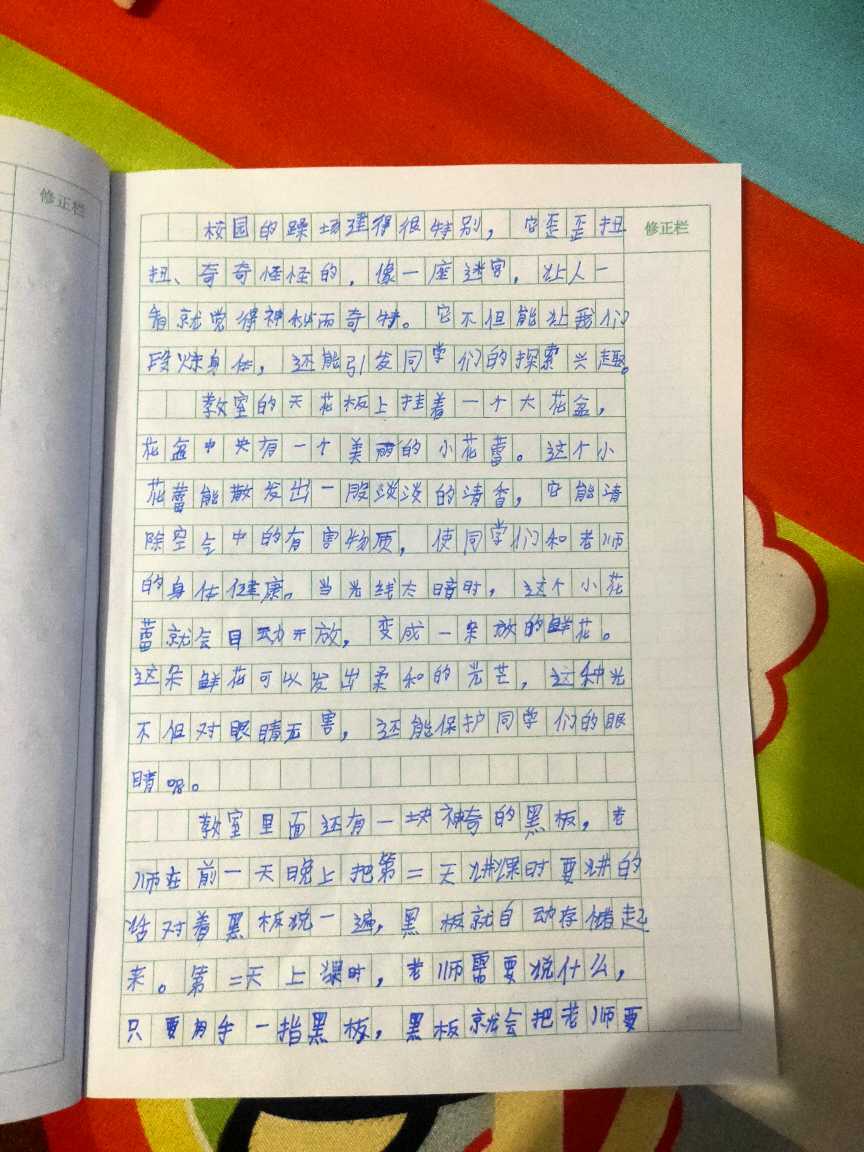 修正栏
校园的躁场建得很特别，它歪歪扭
修正栏
扭、奇奇怪怪的，像一座迷宫，让人一
看就觉得神秘而奇特。它不但能让我们
段炼身体，还能引发同学们的探索兴趣。
教室的天花板上挂着一个大花盆，
花盆中央有一个美丽的小花蕾。这个小
花蕾能散发出一股淡淡的清香，它能清
除空气中的有害物质，使同学们和老师
的身体健康。当光线太暗时，这个小花
蕾就会自动开放，变成一朵放的鲜花。
这朵鲜花可以发出柔和的光芒，这种光
不但对眼睛无害，还能保护同学们的眼
睛呢。
教室里面还有一块神奇的黑板，老
师在前一天晚上把第二天讲课时要讲的
话对着黑板说一遍，黑板就自动存储起
来。第二天上课时，老师需要说什么，
只要用手一指黑板，黑板就会把老师要